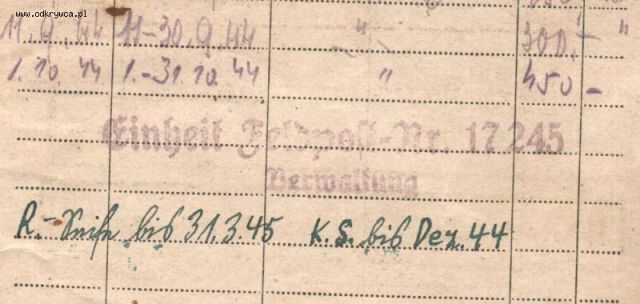 www.odkrywca.pl
11.9.44 11-30.9.44 " 300,- "
1.10.44 1.-31.10.44 " 450-
Einheit Feldpost-Nr. 17245
Verwaltung
R.- bis 31.3.45 K.S. bis Dez. 44